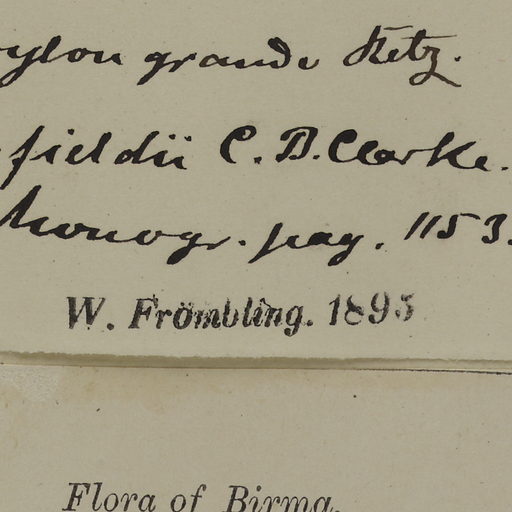 ylon grande Retz.
fieldii C. B. Clarke.
Monogr. pag. 1153.
W. Frömbling. 1893
Flora of Birma.